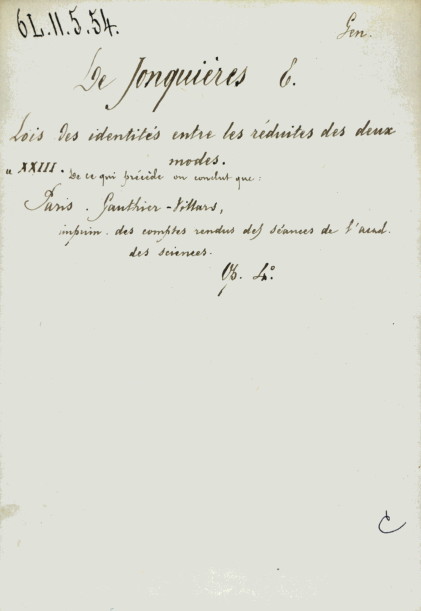 6L.11.5.54.
Gen.
De Jonquières E.
Lois des identités entre les réduites des deux
modes.
« XXIII. De ce qui précède on conclut que:
Paris. Gauthier-Villars,
imprim. des comptes rendus des séances de l'acad.
des sciences.
4º.
C